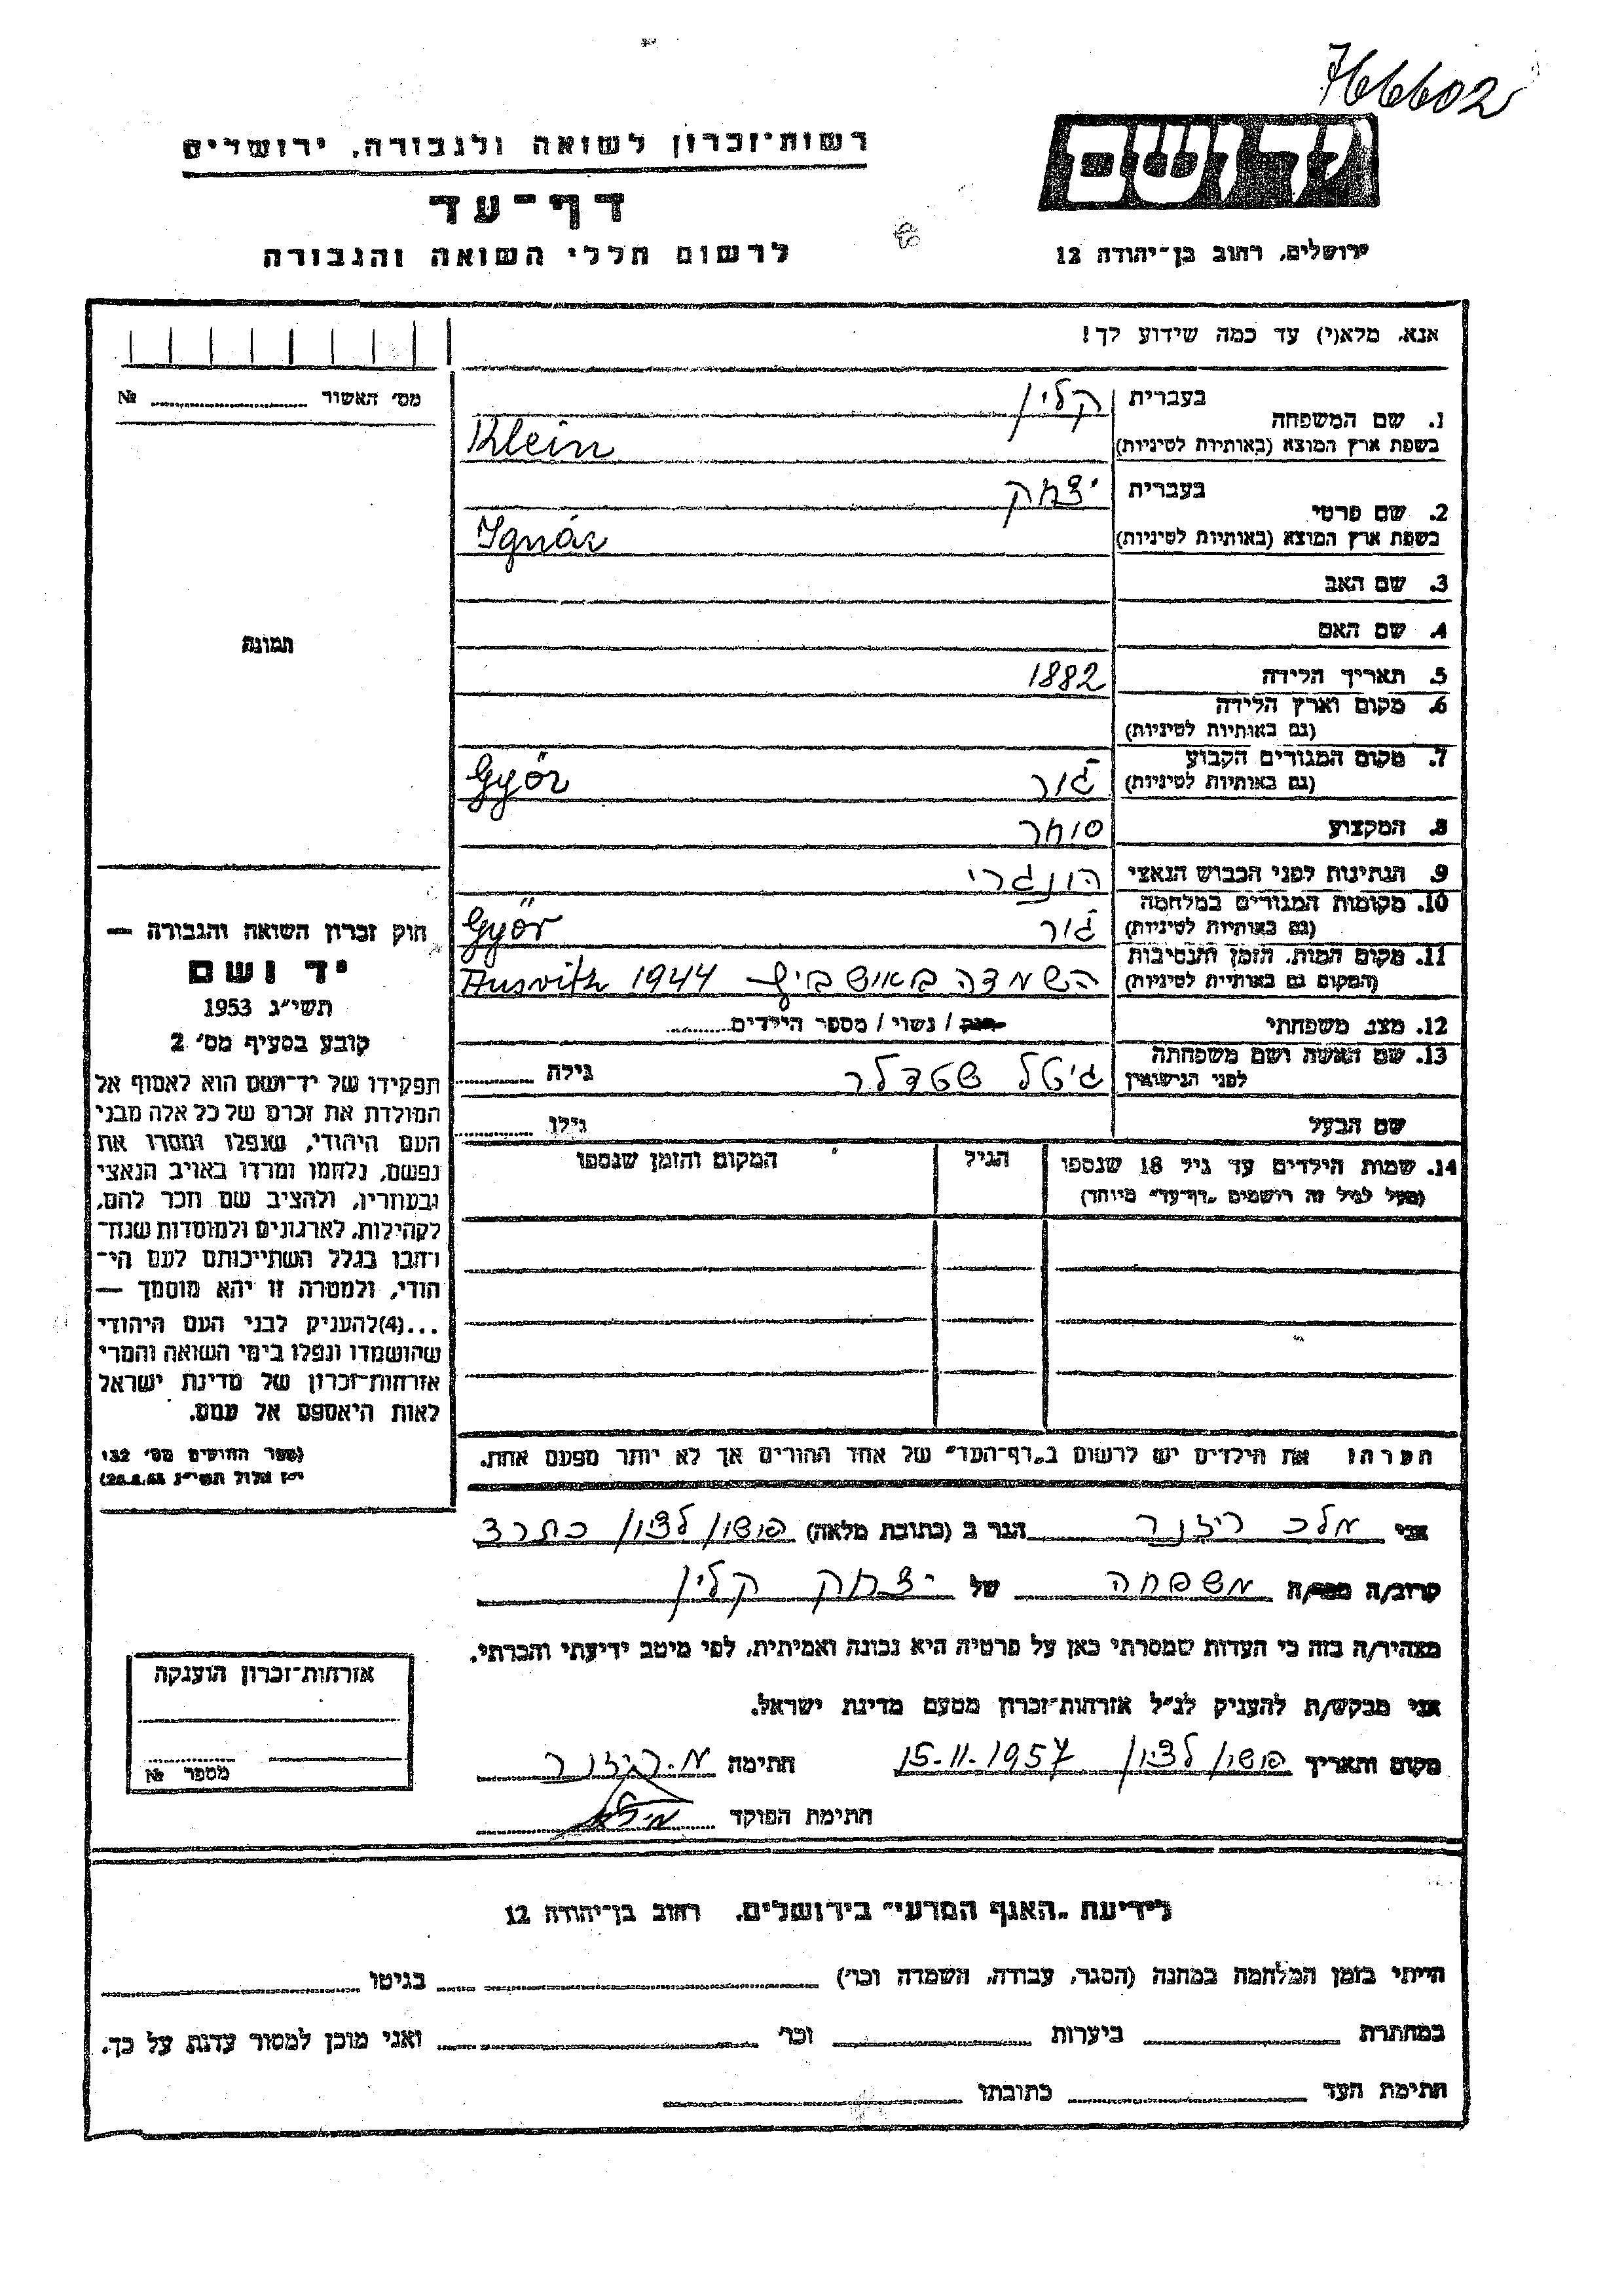 76602
רשות־זכרון לשואה ולגבורה, ירושלים
דף־עד
לרשום חללי השואה והגבורה
ירושלים, רחוב בן־יהודה 12
אנא, מלא(י) עד כמה שידוע לך!
מס׳ האשור № ........
1. שם המשפחה
בעברית קליין
בשפת ארץ המוצא (באותיות לטיניות) Klein
2. שם פרטי
בעברית יצחק
בשפת ארץ המוצא (באותיות לטיניות) Ignác
3. שם האב
4. שם האם
תמונה
5. תאריך הלידה 1882
6. מקום וארץ הלידה
(גם באותיות לטיניות)
7. מקום המגורים הקבוע
(גם באותיות לטיניות) גור Győr
8. המקצוע סוחר
9. הנתינות לפני הכבוש הנאצי הונגרי
10. מקומות המגורים במלחמה
(גם באותיות לטיניות) גור Győr
11. מקום המות, הזמן והנסיבות
(המקום גם באותיות לטיניות) השמדה באושביץ 1944 Ausvitz
12. מצב משפחתי רווק / נשוי / מספר הילדים........
13. שם האשה ושם משפחתה
לפני הנישואין גיטל שטדלר גילה ........
שם הבעל גילו ........
14. שמות הילדים עד גיל 18 שנספו הגיל המקום והזמן שנספו
(מעל לגיל זה רושמים „דף־עד״ מיוחד)
חוק זכרון השואה והגבורה —
יד ושם
תשי״ג 1953
קובע בסעיף מס׳ 2
תפקידו של יד־ושם הוא לאסוף אל
המולדת את זכרם של כל אלה מבני
העם היהודי, שנפלו ומסרו את
נפשם, נלחמו ומרדו באויב הנאצי
ובעוזריו, ולהציב שם וזכר להם,
לקהילות, לארגונים ולמוסדות שנח־
רבו בגלל השתייכותם לעם הי־
הודי, ולמטרה זו יהא מוסמך —
...(4)להעניק לבני העם היהודי
שהושמדו ונפלו בימי השואה והמרי
אזרחות־זכרון של מדינת ישראל
לאות היאספם אל עמם.
(ספר החוקים מס׳ 132
י״ז אלול תשי״ג 28.8.53)
הערה: את הילדים יש לרשום ב„דף־העד״ של אחד ההורים אך לא יותר מפעם אחת.
אני מלכ ריזנר הגר ב (כתובת מלאה) ראשון לציון
קרוב/ה מכר/ה משפחה של יצחק קליין
מצהיר/ה בזה כי העדות שמסרתי כאן על פרטיה היא נכונה ואמיתית, לפי מיטב ידיעתי והכרתי.
אני מבקש/ת להעניק לנ״ל אזרחות־זכרון מטעם מדינת ישראל.
מקום ותאריך ראשון לציון 15-11-1957 חתימה מ. ריזנר
חתימת הפוקד
אזרחות־זכרון הוענקה
מספר №
לידיעת „האגף המדעי״ בירושלים, רחוב בן־יהודה 12
הייתי בזמן המלחמה במחנה (הסגר, עבודה, השמדה וכו׳) ........ בגיטו ........
במחתרת ........ ביערות ........ וכו׳ ........ ואני מוכן למסור עדות על כך.
חתימת העד ........ כתובתו ........